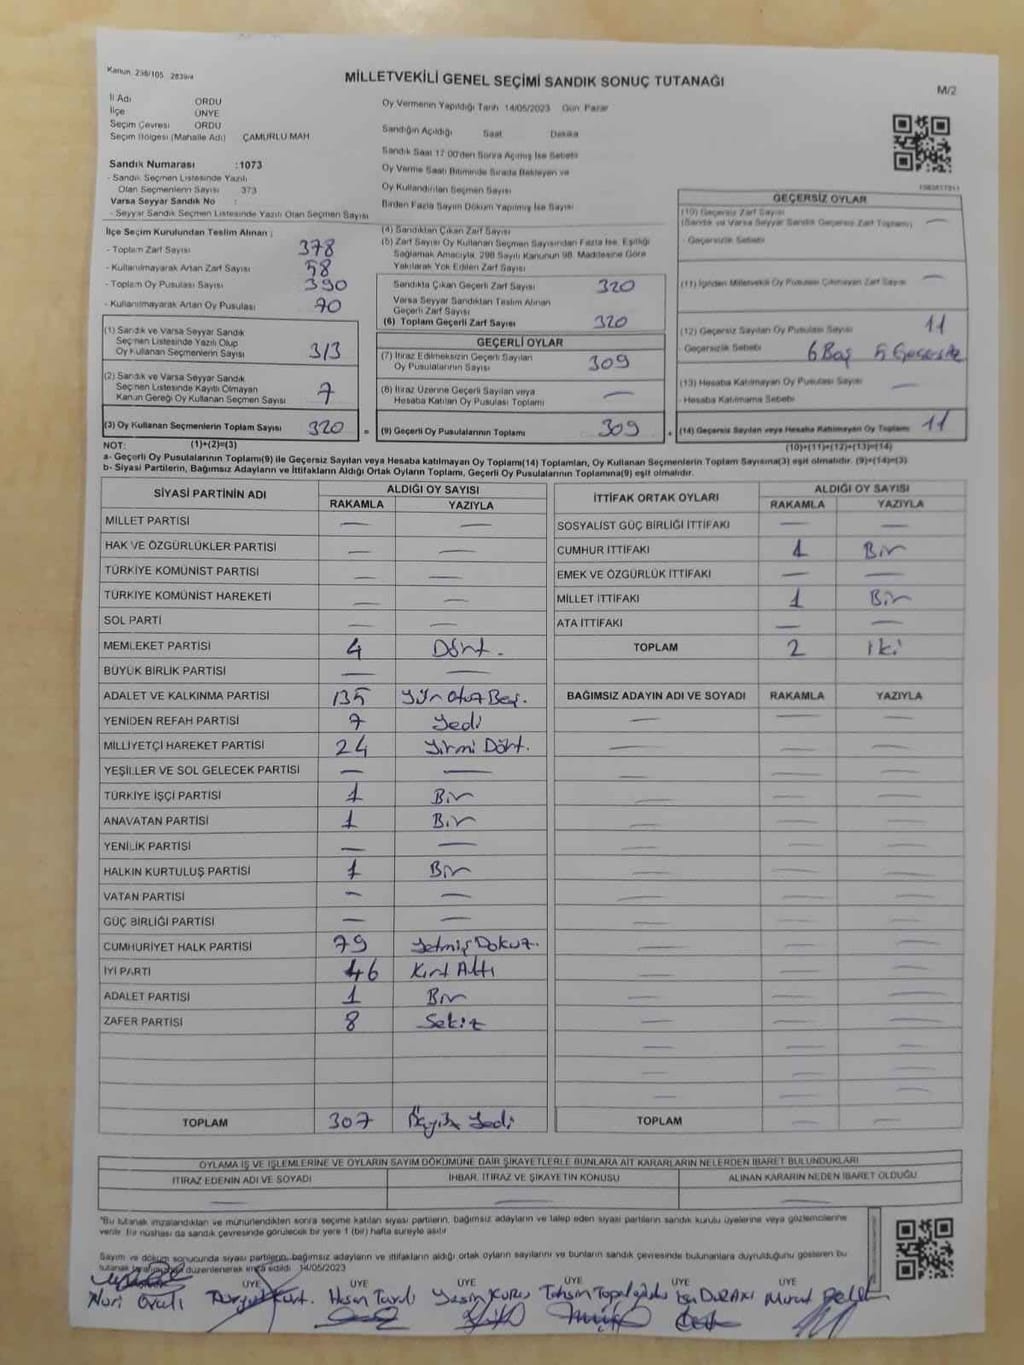 Kanun. 298/105 2839/4
MİLLETVEKİLİ GENEL SEÇİMİ SANDIK SONUÇ TUTANAĞI
M/2
İl Adı ORDU
İlçe ÜNYE
Seçim Çevresi ORDU
Seçim Bölgesi (Mahalle Adı) ÇAMURLU MAH
Sandık Numarası :1073
- Sandık Seçmen Listesinde Yazılı
Olan Seçmenlerin Sayısı 373
Varsa Seyyar Sandık No :
- Seyyar Sandık Seçmen Listesinde Yazılı Olan Seçmen Sayısı
Oy Vermenin Yapıldığı Tarih 14/05/2023 Gün Pazar
Sandığın Açıldığı Saat Dakika
Sandık Saat 17.00'den Sonra Açılmış İse Sebebi
Oy Verme Saati Bitiminde Sırada Bekleyen ve
Oy Kullandırılan Seçmen Sayısı
Birden Fazla Sayım Döküm Yapılmış İse Sayısı
İlçe Seçim Kurulundan Teslim Alınan ;
- Toplam Zarf Sayısı 378
- Kullanılmayarak Artan Zarf Sayısı 58
- Toplam Oy Pusulası Sayısı 390
- Kullanılmayarak Artan Oy Pusulası 70
(1) Sandık ve Varsa Seyyar Sandık
Seçmen Listesinde Yazılı Olup
Oy Kullanan Seçmenlerin Sayısı 313
(2) Sandık ve Varsa Seyyar Sandık
Seçmen Listesinde Kayıtlı Olmayan
Kanun Gereği Oy Kullanan Seçmen Sayısı 7
(3) Oy Kullanan Seçmenlerin Toplam Sayısı 320
(4) Sandıktan Çıkan Zarf Sayısı
(5) Zarf Sayısı Oy Kullanan Seçmen Sayısından Fazla İse, Eşitliği
Sağlamak Amacıyla, 298 Sayılı Kanunun 98. Maddesine Göre
Yakılarak Yok Edilen Zarf Sayısı
Sandıkta Çıkan Geçerli Zarf Sayısı 320
Varsa Seyyar Sandıktan Teslim Alınan
Geçerli Zarf Sayısı
(6) Toplam Geçerli Zarf Sayısı 320
GEÇERLİ OYLAR
(7) İtiraz Edilmeksizin Geçerli Sayılan
Oy Pusulalarının Sayısı 309
(8) İtiraz Üzerine Geçerli Sayılan veya
Hesaba Katılan Oy Pusulası Toplamı —
= (9) Geçerli Oy Pusulalarının Toplamı 309
GEÇERSİZ OYLAR
(10) Geçersiz Zarf Sayısı —
(Sandık ve Varsa Seyyar Sandık Geçersiz Zarf Toplamı)
- Geçersizlik Sebebi
(11) İçinden Milletvekili Oy Pusulası Çıkmayan Zarf Sayısı —
(12) Geçersiz Sayılan Oy Pusulası Sayısı 11
- Geçersizlik Sebebi 6 Boş 5 Geçersiz
(13) Hesaba Katılmayan Oy Pusulası Sayısı —
- Hesaba Katılmama Sebebi
+ (14) Geçersiz Sayılan veya Hesaba Katılmayan Oy Toplamı 11
NOT: (1)+(2)=(3) (10)+(11)+(12)+(13)=(14)
a- Geçerli Oy Pusulalarının Toplamı(9) ile Geçersiz Sayılan veya Hesaba katılmayan Oy Toplamı(14) Toplamları, Oy Kullanan Seçmenlerin Toplam Sayısına(3) eşit olmalıdır. (9)+(14)=(3)
b- Siyasi Partilerin, Bağımsız Adayların ve İttifakların Aldığı Ortak Oyların Toplamı, Geçerli Oy Pusulalarının Toplamına(9) eşit olmalıdır.
SİYASİ PARTİNİN ADI ALDIĞI OY SAYISI
RAKAMLA YAZIYLA
MİLLET PARTİSİ — —
HAK VE ÖZGÜRLÜKLER PARTİSİ — —
TÜRKİYE KOMÜNİST PARTİSİ — —
TÜRKİYE KOMÜNİST HAREKETİ — —
SOL PARTİ — —
MEMLEKET PARTİSİ 4 Dört.
BÜYÜK BİRLİK PARTİSİ — —
ADALET VE KALKINMA PARTİSİ 135 Yüz Otuz Beş.
YENİDEN REFAH PARTİSİ 7 Yedi
MİLLİYETÇİ HAREKET PARTİSİ 24 Yirmi Dört.
YEŞİLLER VE SOL GELECEK PARTİSİ — —
TÜRKİYE İŞÇİ PARTİSİ 1 Bir
ANAVATAN PARTİSİ 1 Bir
YENİLİK PARTİSİ — —
HALKIN KURTULUŞ PARTİSİ 1 Bir
VATAN PARTİSİ — —
GÜÇ BİRLİĞİ PARTİSİ — —
CUMHURİYET HALK PARTİSİ 79 Yetmiş Dokuz.
İYİ PARTİ 46 Kırk Altı
ADALET PARTİSİ 1 Bir
ZAFER PARTİSİ 8 Sekiz
TOPLAM 307 Üçyüz Yedi
İTTİFAK ORTAK OYLARI ALDIĞI OY SAYISI
RAKAMLA YAZIYLA
SOSYALİST GÜÇ BİRLİĞİ İTTİFAKI — —
CUMHUR İTTİFAKI 1 Bir
EMEK VE ÖZGÜRLÜK İTTİFAKI — —
MİLLET İTTİFAKI 1 Bir
ATA İTTİFAKI — —
TOPLAM 2 İki
BAĞIMSIZ ADAYIN ADI VE SOYADI RAKAMLA YAZIYLA
TOPLAM — —
OYLAMA İŞ VE İŞLEMLERİNE VE OYLARIN SAYIM DÖKÜMÜNE DAİR ŞİKAYETLERLE BUNLARA AİT KARARLARIN NELERDEN İBARET BULUNDUKLARI
İTİRAZ EDENİN ADI VE SOYADI İHBAR, İTİRAZ VE ŞİKAYETİN KONUSU ALINAN KARARIN NEDEN İBARET OLDUĞU
"Bu tutanak imzalandıktan ve mühürlendikten sonra seçime katılan siyasi partilerin, bağımsız adayların ve talep eden siyasi partilerin sandık kurulu üyelerine veya gözlemcilerine
verilir. Bir nüshası da sandık çevresinde görülecek bir yere 1 (bir) hafta süreyle asılır
Sayım ve döküm sonucunda siyasi partilerin, bağımsız adayların ve ittifakların aldığı ortak oyların sayılarını ve bunların sandık çevresinde bulunanlara duyrulduğunu gösteren bu
tutanak tarafımızdan düzenlenerek imza edildi. 14/05/2023
ÜYE ÜYE ÜYE ÜYE ÜYE ÜYE
Nuri Hasan Yasin Tahsin Murat